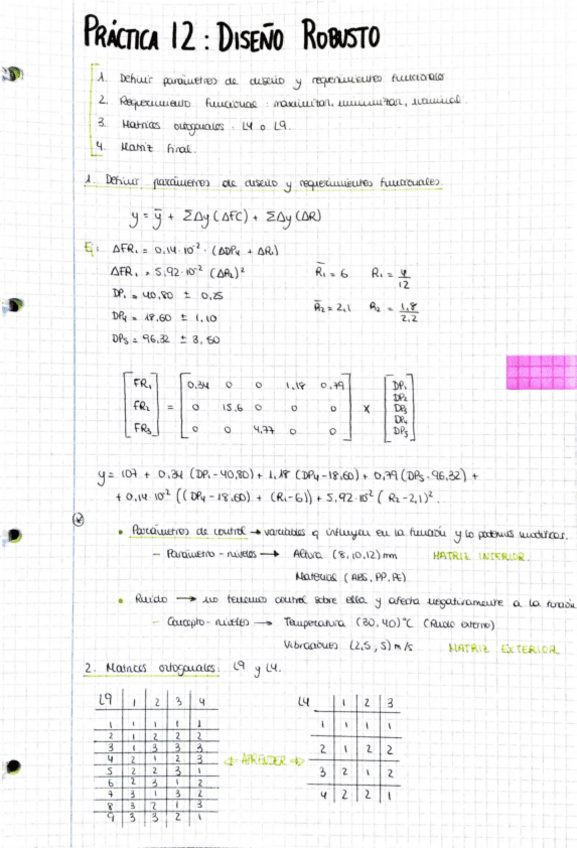 PRÁCTICA 12: DISEÑO ROBUSTO
1. Definir parámetros de diseño y requerimientos funcionales
2. Requerimiento funcional: maximizar, minimizar, nominal.
3. Matrices ortogonales: L4 o L9.
4. Matriz Final.
1. Definir parámetros de diseño y requerimientos funcionales
y = ȳ + ΣΔy (ΔFC) + ΣΔy (ΔR)
Ej: ΔFR₁ = 0,14·10⁻² · (ΔDP₄ + ΔR₁)
ΔFR₁ = 5,92·10⁻² (ΔR₂)² R̄₁ = 6 R₁ = 4/12
DP₁ = 40,80 ± 0,25
DP₄ = 18,60 ± 1,10 R̄₂ = 2,1 R₂ = 1,8/2,2
DP₅ = 96,32 ± 3,50
FR₁ 0,34 0 0 1,18 0,79 DP₁
FR₂ = 0 15,6 0 0 0 x DP₂
DP₃
FR₃ 0 0 4,77 0 0 DP₄
DP₅
y = 107 + 0,34 (DP₁ - 40,80) + 1,18 (DP₄ - 18,60) + 0,79 (DP₅ - 96,32) +
+ 0,14·10⁻² ((DP₄ - 18,60) + (R₁ - 6)) + 5,92·10⁻² (R₂ - 2,1)².
• Parámetros de control → variables q influyen en la función y lo podemos modificar.
- Parámetro - niveles → Altura (8,10,12) mm MATRIZ INTERIOR.
Material (ABS, PP, PE)
• Ruido → no tenemos control sobre ella y afecta negativamente a la función
- Concepto - niveles → Temperatura (30, 40) °C (Ruido externo)
Vibraciones (2,5, 5) m/s MATRIZ EXTERIOR
2. Matrices ortogonales: L9 y L4.
L9 1 2 3 4
1 1 1 1 1
2 1 2 2 2
3 1 3 3 3
4 2 1 2 3
5 2 2 3 1
6 2 3 1 2
7 3 1 3 2
8 3 2 1 3
9 3 3 2 1
← APRENDER →
L4 1 2 3
1 1 1 1
2 1 2 2
3 2 1 2
4 2 2 1